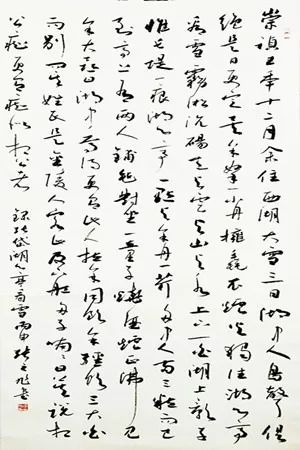 崇禎五年十二月余住西湖大雪三日湖中人鳥聲俱
絕是日更定矣余拏一小舟擁毳衣爐火獨往湖心亭
看雪霧淞沆碭天与雲与山与水上下一白湖上影子
惟長堤一痕湖心亭一點与余舟一芥舟中人兩三粒而已
到亭上有兩人鋪氈對坐一童子燒酒爐正沸見
余大喜曰湖中焉得更有此人拉余同飲余強飲三大白
而別問其姓氏是金陵人客此及下船舟子喃喃曰莫說相
公癡更有癡似相公者
錄張岱湖心亭看雪